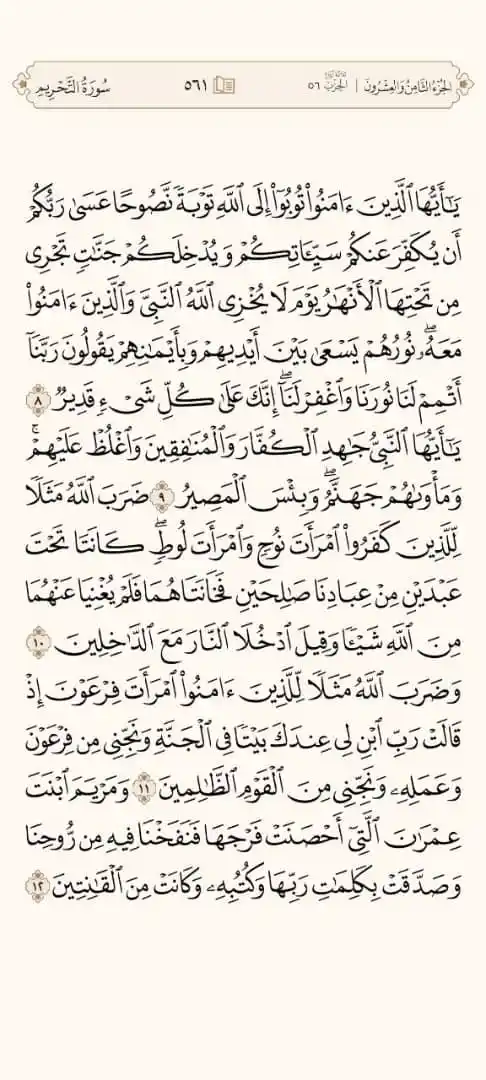 الجُزءُ الثَّامِنُ وَالعِشْرُونَ | الحِزْبُ ٥٦ ٥٦١ سُورَةُ التَّحْرِيمِ
يَٰٓأَيُّهَا ٱلَّذِينَ ءَامَنُوا۟ تُوبُوٓا۟ إِلَى ٱللَّهِ تَوْبَةً نَّصُوحًا عَسَىٰ رَبُّكُمْ
أَن يُكَفِّرَ عَنكُمْ سَيِّـَٔاتِكُمْ وَيُدْخِلَكُمْ جَنَّٰتٍ تَجْرِى
مِن تَحْتِهَا ٱلْأَنْهَٰرُ يَوْمَ لَا يُخْزِى ٱللَّهُ ٱلنَّبِىَّ وَٱلَّذِينَ ءَامَنُوا۟
مَعَهُۥ ۖ نُورُهُمْ يَسْعَىٰ بَيْنَ أَيْدِيهِمْ وَبِأَيْمَٰنِهِمْ يَقُولُونَ رَبَّنَآ
أَتْمِمْ لَنَا نُورَنَا وَٱغْفِرْ لَنَآ ۖ إِنَّكَ عَلَىٰ كُلِّ شَىْءٍ قَدِيرٌ ٨
يَٰٓأَيُّهَا ٱلنَّبِىُّ جَٰهِدِ ٱلْكُفَّارَ وَٱلْمُنَٰفِقِينَ وَٱغْلُظْ عَلَيْهِمْ ۚ
وَمَأْوَىٰهُمْ جَهَنَّمُ ۖ وَبِئْسَ ٱلْمَصِيرُ ٩ ضَرَبَ ٱللَّهُ مَثَلًا
لِّلَّذِينَ كَفَرُوا۟ ٱمْرَأَتَ نُوحٍ وَٱمْرَأَتَ لُوطٍ ۖ كَانَتَا تَحْتَ
عَبْدَيْنِ مِنْ عِبَادِنَا صَٰلِحَيْنِ فَخَانَتَاهُمَا فَلَمْ يُغْنِيَا عَنْهُمَا
مِنَ ٱللَّهِ شَيْـًٔا وَقِيلَ ٱدْخُلَا ٱلنَّارَ مَعَ ٱلدَّٰخِلِينَ ١٠
وَضَرَبَ ٱللَّهُ مَثَلًا لِّلَّذِينَ ءَامَنُوا۟ ٱمْرَأَتَ فِرْعَوْنَ إِذْ
قَالَتْ رَبِّ ٱبْنِ لِى عِندَكَ بَيْتًا فِى ٱلْجَنَّةِ وَنَجِّنِى مِن فِرْعَوْنَ
وَعَمَلِهِۦ وَنَجِّنِى مِنَ ٱلْقَوْمِ ٱلظَّٰلِمِينَ ١١ وَمَرْيَمَ ٱبْنَتَ
عِمْرَٰنَ ٱلَّتِىٓ أَحْصَنَتْ فَرْجَهَا فَنَفَخْنَا فِيهِ مِن رُّوحِنَا
وَصَدَّقَتْ بِكَلِمَٰتِ رَبِّهَا وَكُتُبِهِۦ وَكَانَتْ مِنَ ٱلْقَٰنِتِينَ ١٢